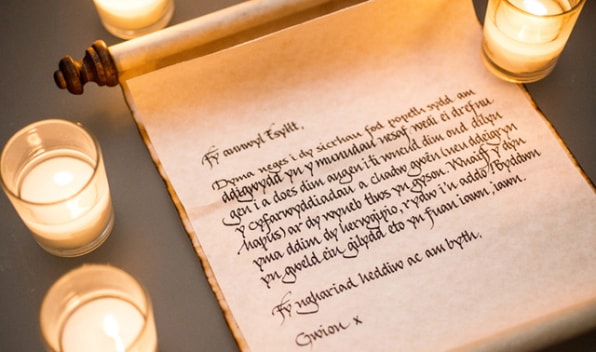 Fy annwyl Esyllt,
Dyma neges i dy sicrhau fod popeth sydd am
ddigwydd yn y munudau nesaf wedi ei drefnu
gen i a does dim angen i ti wneud dim ond dilyn
y cyfarwyddiadau a chadw gwên (neu ddeigryn
hapus) ar dy wyneb tlws yn gyson. Wnaiff y dyn
yma ddim dy herwgipio, rydw i'n addo! Byddwn
yn gweld ein gilydd eto yn fuan iawn, iawn.
Fy nghariad heddiw ac am byth,
Gwion x